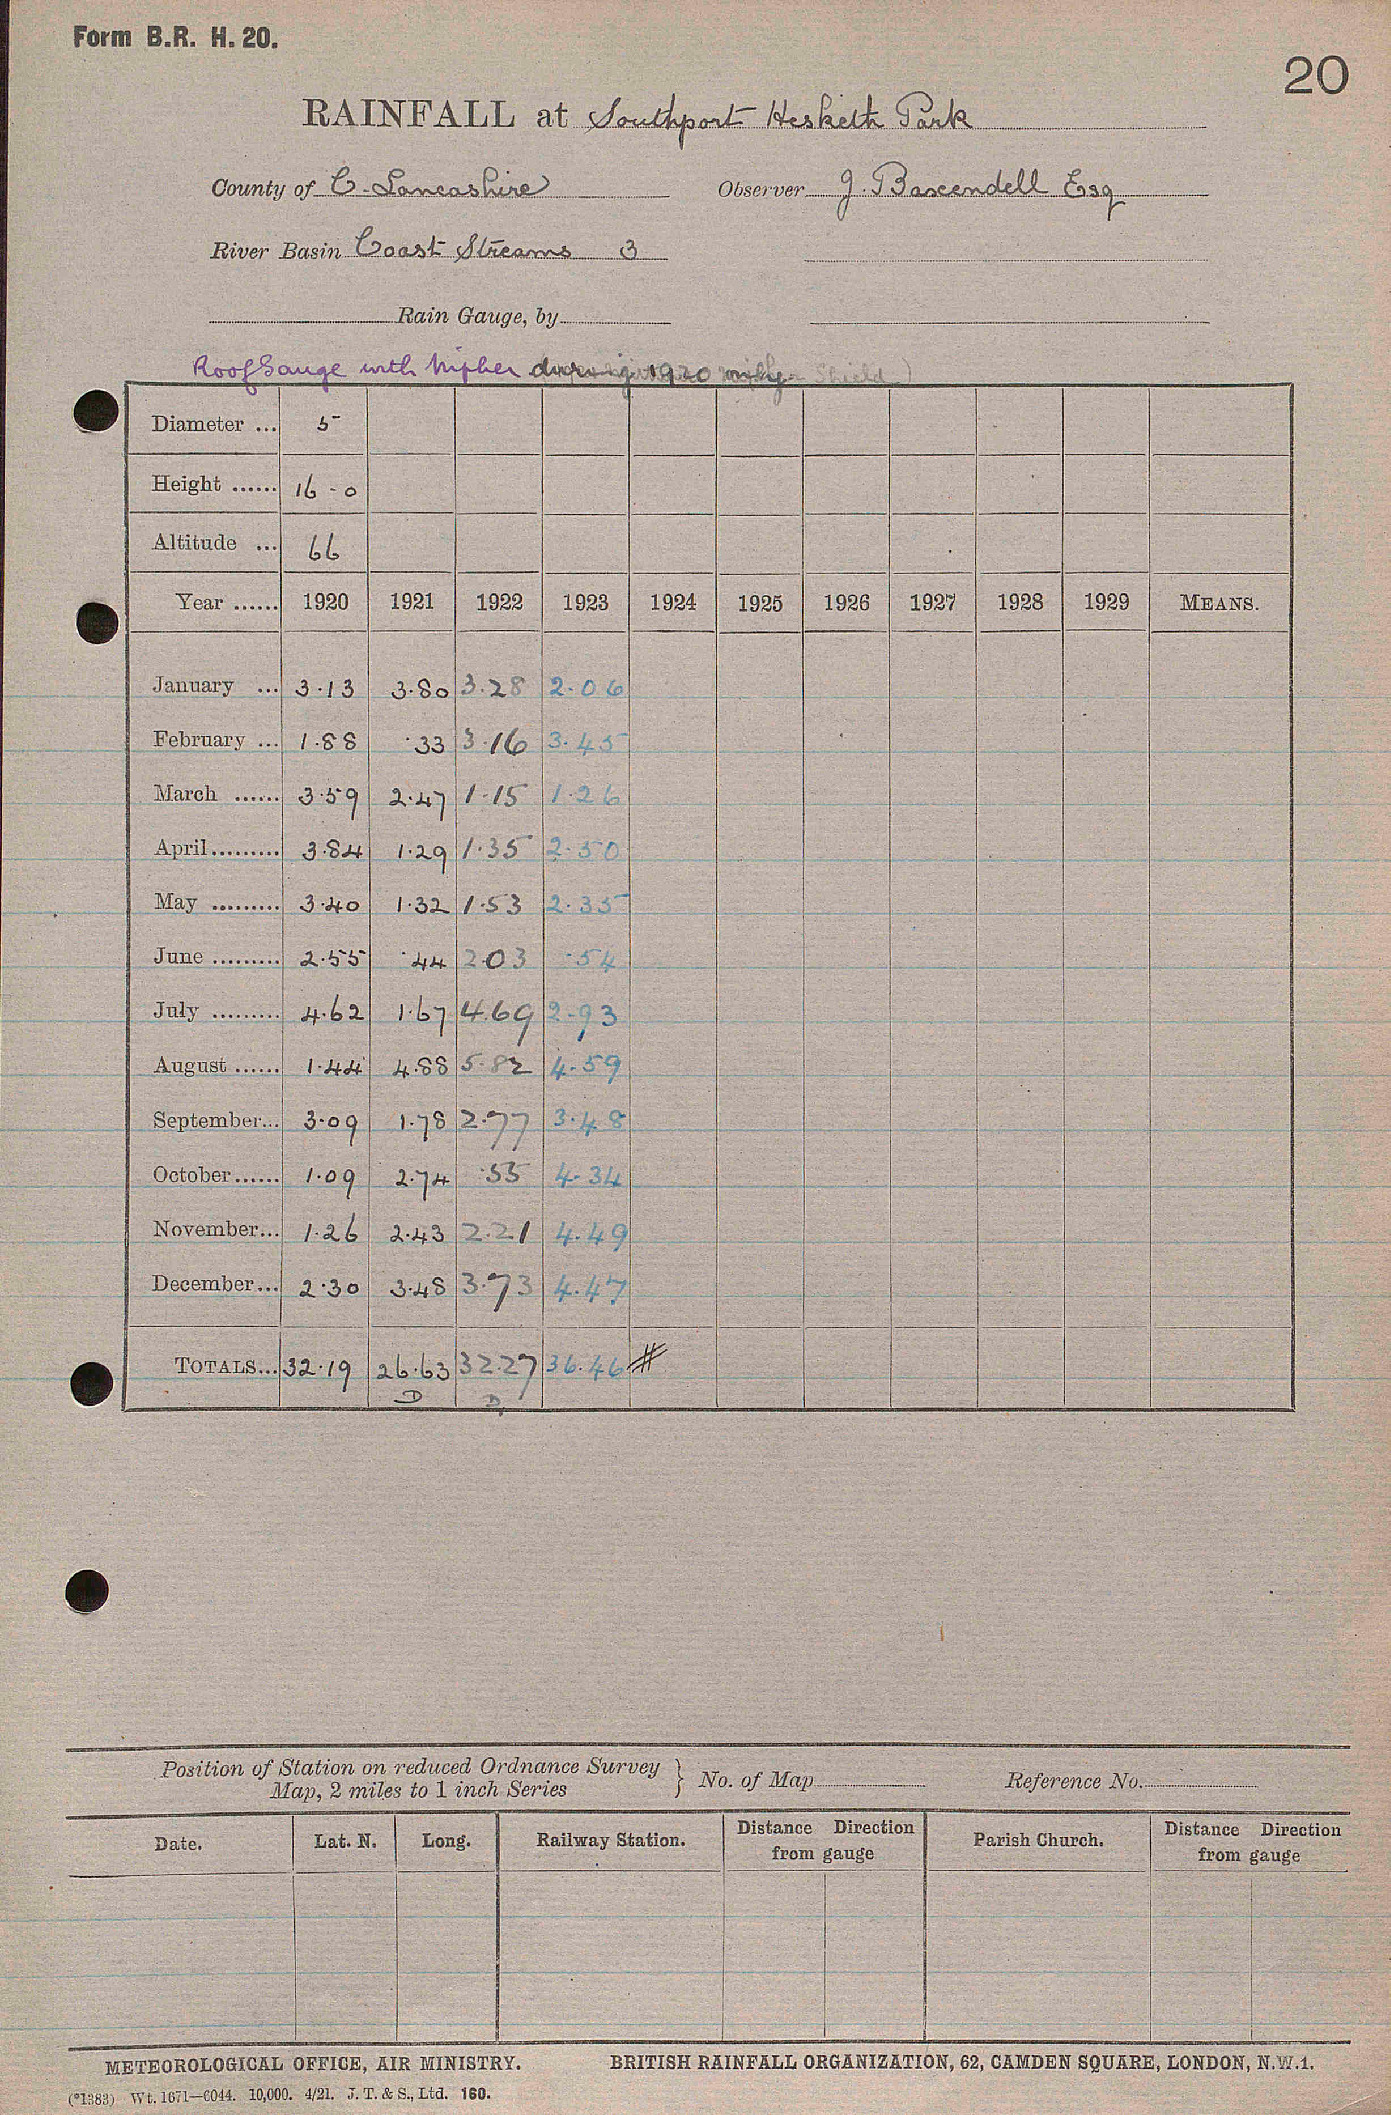 Form B.R. H. 20.
20
RAINFALL at Southport Hesketh Park
County of C. Lancashire Observer J. Baxendell Esq
River Basin Coast Streams 3
Rain Gauge, by
Roof Gauge with Nipher during 1920 only. Shield)
Diameter ... 5
Height ...... 16-0
Altitude ... 66
Year ...... 1920 1921 1922 1923 1924 1925 1926 1927 1928 1929 MEANS.
January ... 3.13 3.80 3.28 2.06
February ... 1.88 .33 3.16 3.45
March ...... 3.59 2.47 1.15 1.26
April ......... 3.84 1.29 1.35 2.50
May ......... 3.40 1.32 1.53 2.35
June ......... 2.55 .44 2.03 .54
July ......... 4.62 1.67 4.69 2.93
August ...... 1.44 4.88 5.82 4.59
September... 3.09 1.78 2.77 3.48
October...... 1.09 2.74 .55 4.34
November... 1.26 2.43 2.21 4.49
December... 2.30 3.48 3.73 4.47
TOTALS... 32.19 26.63 32.27 36.46 #
D D
Position of Station on reduced Ordnance Survey
Map, 2 miles to 1 inch Series } No. of Map Reference No.
Date. Lat. N. Long. Railway Station. Distance Direction from gauge Parish Church. Distance Direction from gauge
METEOROLOGICAL OFFICE, AIR MINISTRY. BRITISH RAINFALL ORGANIZATION, 62, CAMDEN SQUARE, LONDON, N.W.1.
(*1383) Wt. 1671—6044. 10,000. 4/21. J. T. & S., Ltd. 160.